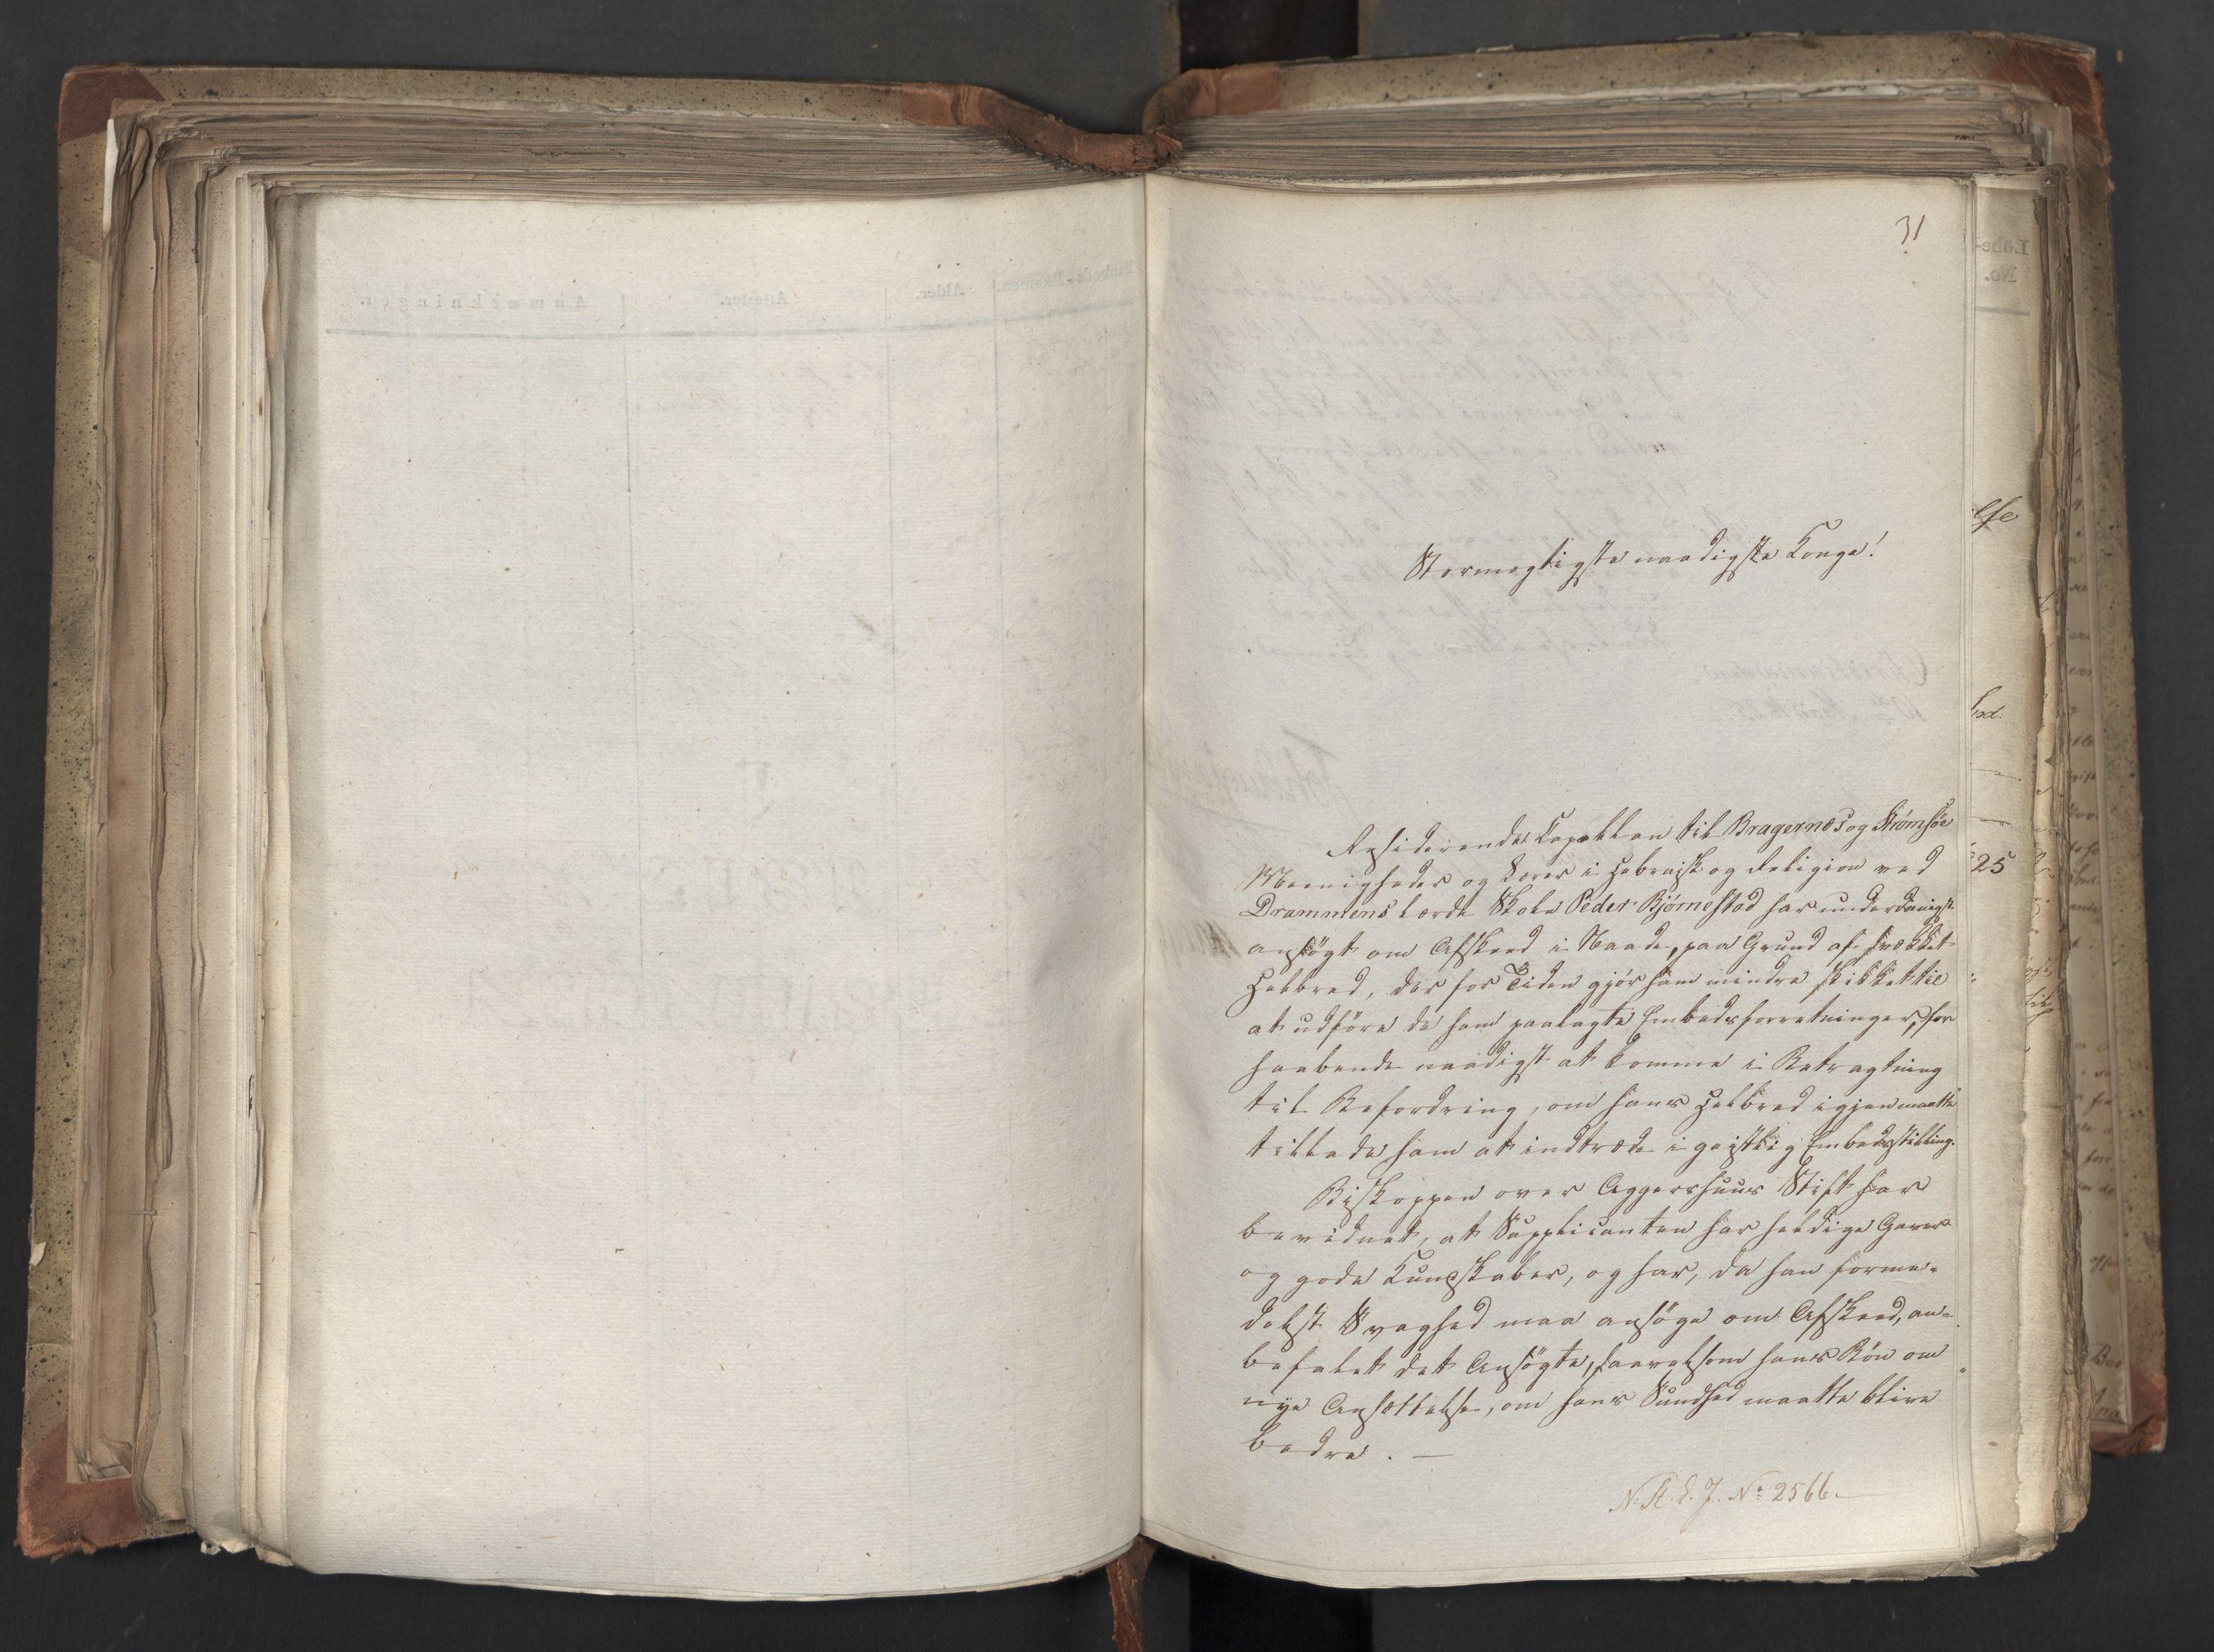 31
Stormægtigste naadigste Konge!
Residerende Capellan til Bragernes og Strømsøe
Menigheder og Lærer i Hebraisk og Religion ved
Drammens lærde Skole Peder Bjørnestad har underdanigst
ansøgt om Afskeed i Naade, paa Grund af svækket
Helbred, der for Tiden gjør ham mindre skikket til
at udføre de ham paalagte Embedsforretninger, for
haabende naadigst at komme i Betragtning
til Befordring, om hans Helbred igjen maatte
tillade ham at indtræde i geistlig Embedsstilling.
Biskoppen over Aggershuus Stift har
bevidnet, at Supplicanten har heldige Gaver
og gode Kundskaber, og har, da han forme-
delst Svaghed maa ansøge om Afskeed, an-
befalet det Ansøgte, saavelsom hans Bøn om
nye Ansættelse, om hans Sundhed maatte blive
bedre. —
N. R. E. J. No 2566.
25